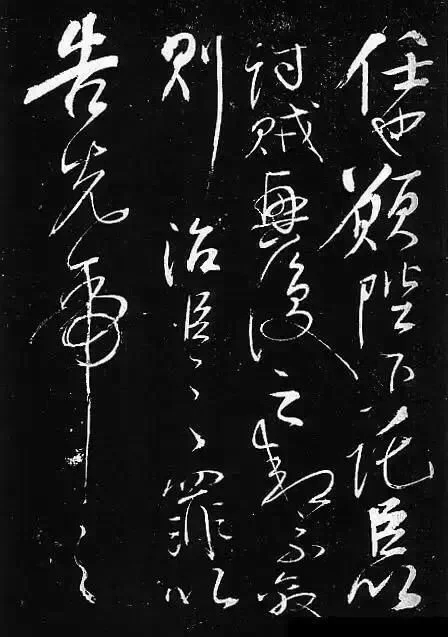 任也願陛下託臣以
討賊興復之效不效
則治臣之罪以
告先帝之